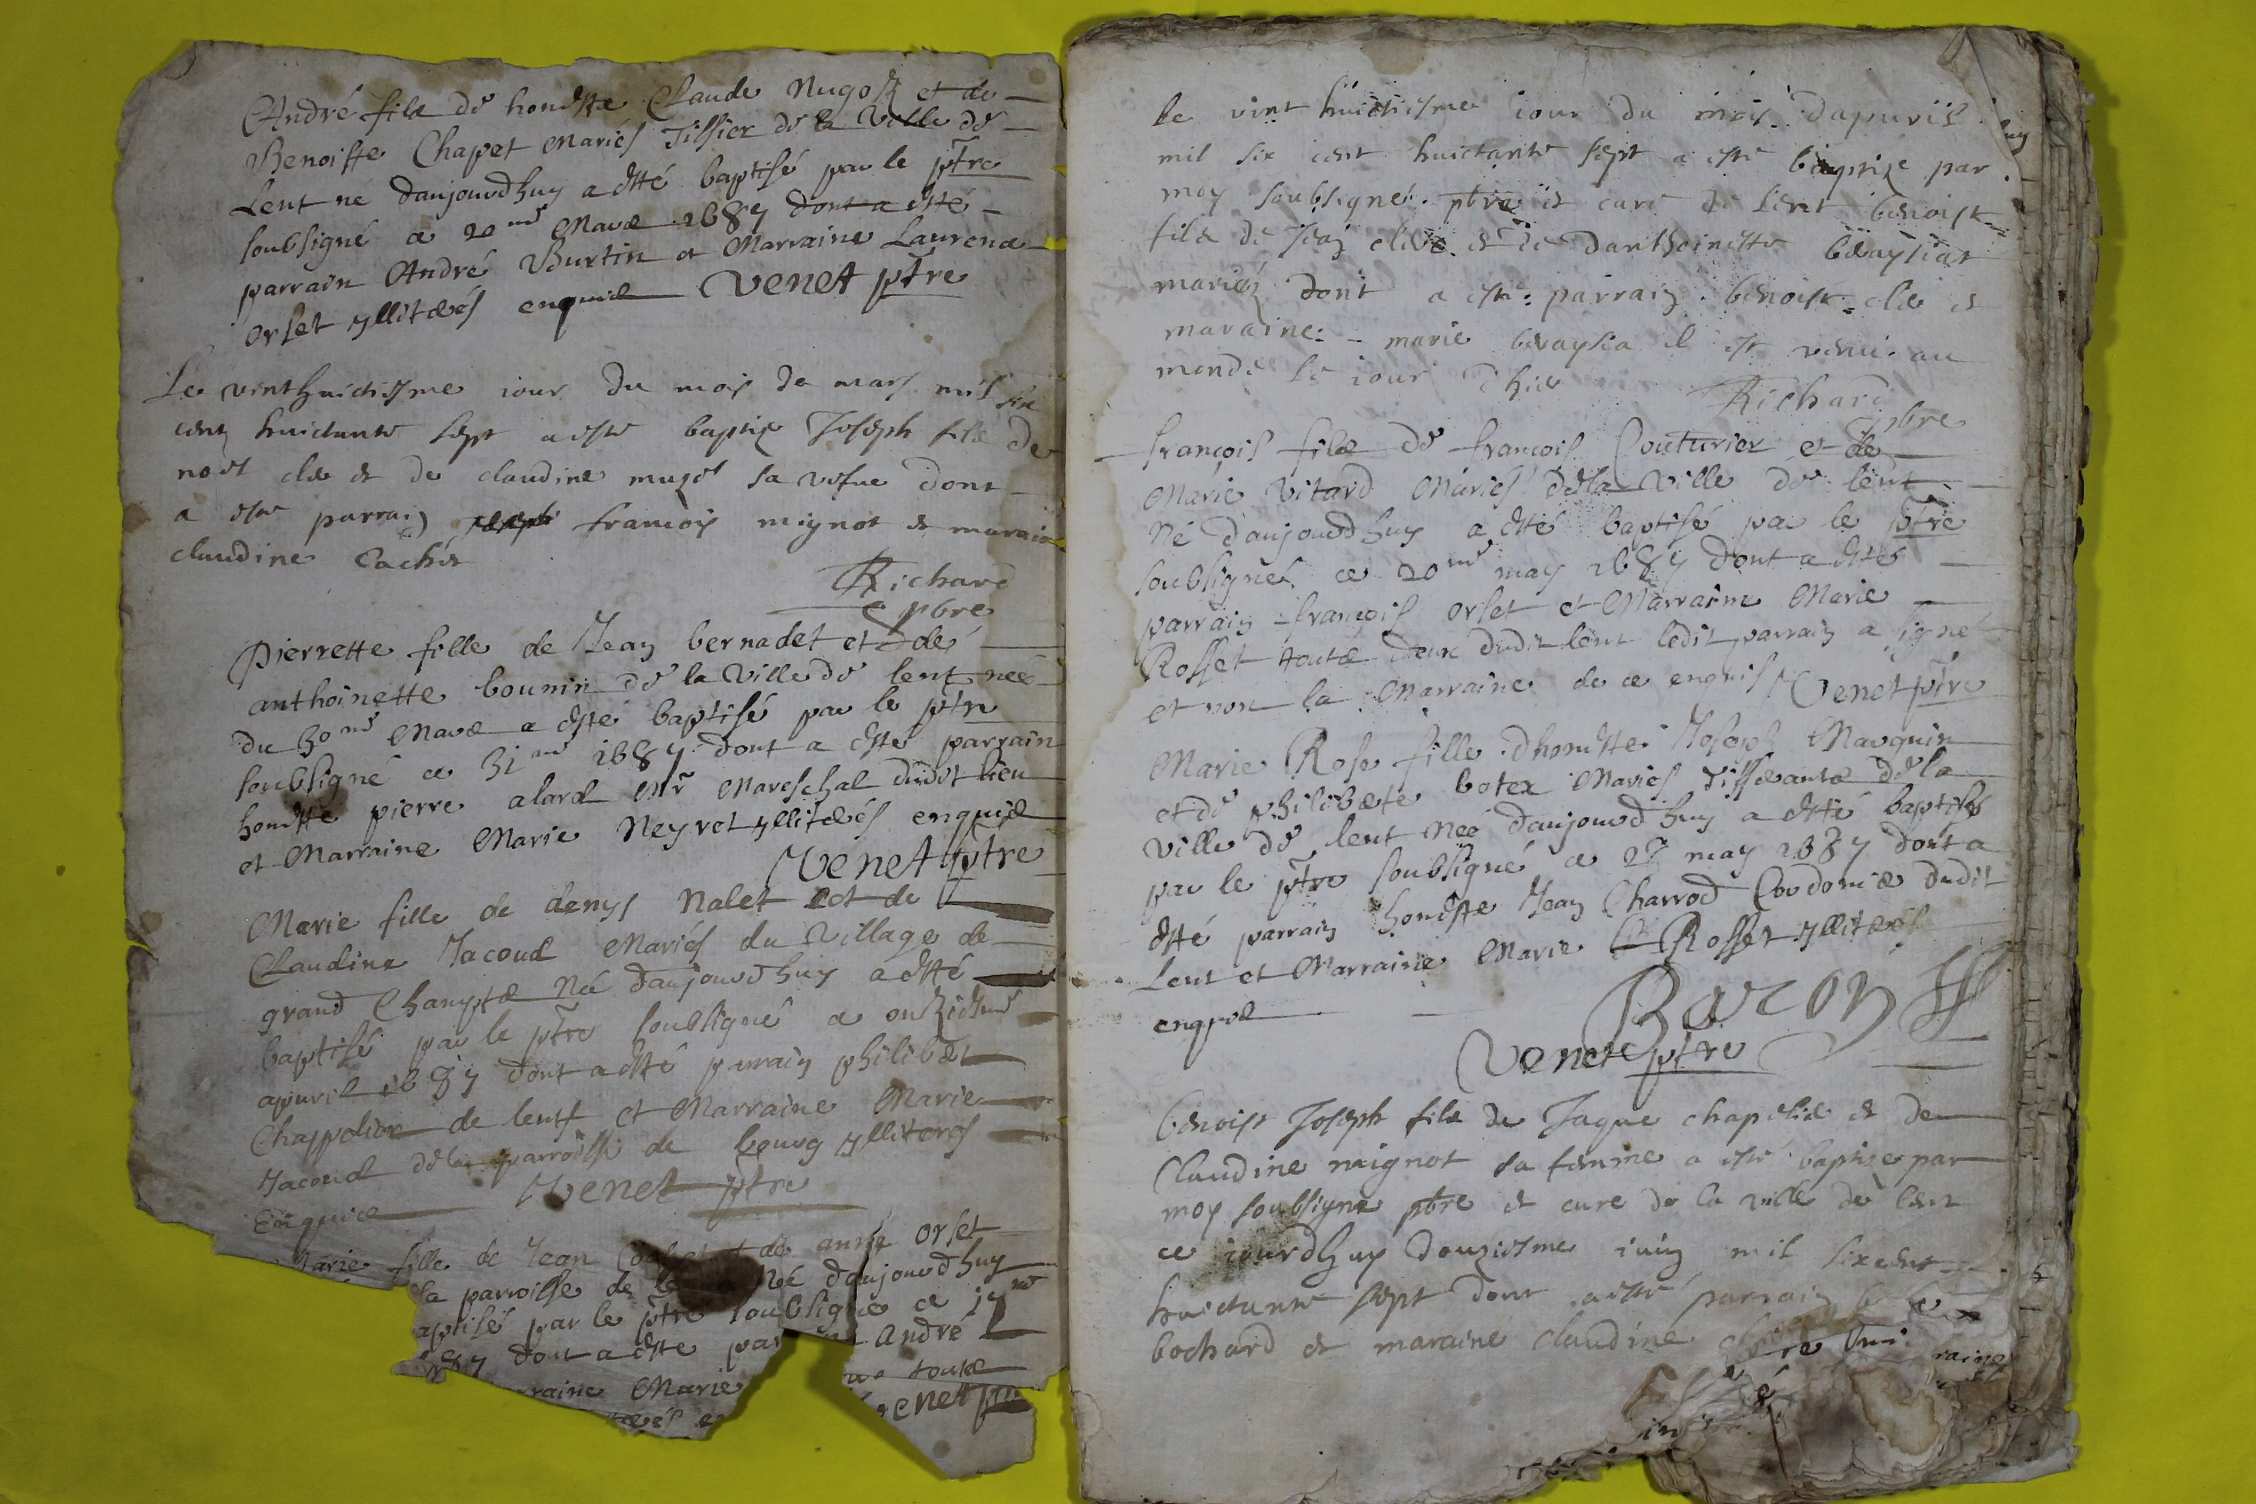 André fils de honeste Claude Nugost et de
Benoiste Chapet Mariés Tissier de la Ville de
Lent né daujourdhuy a esté baptisé par le ptre
soubsigné ce 20me Mars 1687 dont a esté
parrain André Burtin et Marraine Laurence
orset yllitérés enquis Venet ptre
Le vinthuictisme iour du mois de mars mil six
cent huictante sept a este baptize Joseph fils de
noel cler et de claudine mugot sa vefue dont
a este parrain françois mignot et maraine
claudine Cachet
Richard
pbre
Pierrette fille de Jean bernadet et de
anthoinette bounin de la Ville de lent née
du 30me Mars a esté baptisé par le ptre
soubsigné ce 31me 1687 dont a esté parrain
honeste pierre alard Mr Mareschal dudit lieu
et Marraine Marie Neyret yllitérés enquis
Venet ptre
Marie fille de denys Nalet et de
Claudine Jacoud Mariés du Village de
grand Champts Née daujourdhuy a esté
baptisé par le ptre soubsigné ce onziesme
apuril 1687 dont a esté parrain philibert
Chappelion de lent et Marraine Marie
Jacoud de la parroisse de bourg yllitores
Enquice Venet ptre
Marie fille de Jean de anne orset
la parroisse de Née daujourdhuy
aptisé par le ptre soubsigné ce 17me
1687 dont a este par André
rraine Marie toute
Venet ptre
le vint huictiesme iour du mois dapuril
mil six cent huictante sept a este baptize par
moy soubsigné pbre et curé de Lent benoist
fils de Jean cler et de danthoinette beraysiat
mariés dont a este parrain benoist cler et
maraine marie beraysia il est venu au
monde le iour d'hier Richard
pbre
françois fils de françois Couturier et de
Marie Vitard Mariés de la Ville de lent
Né daujourdhuy a esté baptisé par le ptre
soubsigné ce 20me may 1687 dont a esté
parrain françois orset et Marraine Marie
Rosset toute deux dudit lent ledit parrain a signé
et non la Marraine de ce enquis Venet ptre
Marie Rose fille d'honeste Joseph Marguin
et de philiberte botex Mariés Tisserants de la
ville de lent Née daujourdhuy a esté baptisée
par le ptre soubsigné ce 27 may 1687 dont a
esté parrain honeste Jean Charrod Cordonier dudit
Lent et Marraine Marie Rosset yllitérés
enquis
Baron
Venet ptre
benoist Joseph fils de Jaque chapelier et de
Claudine mignot sa femme a esté baptize par
moy soubsigne pbre et cure de la ville de lent
ce iourdhuy douziesme iuin mil sixcent
huictante sept dont a esté parrain
bochard et maraine claudine